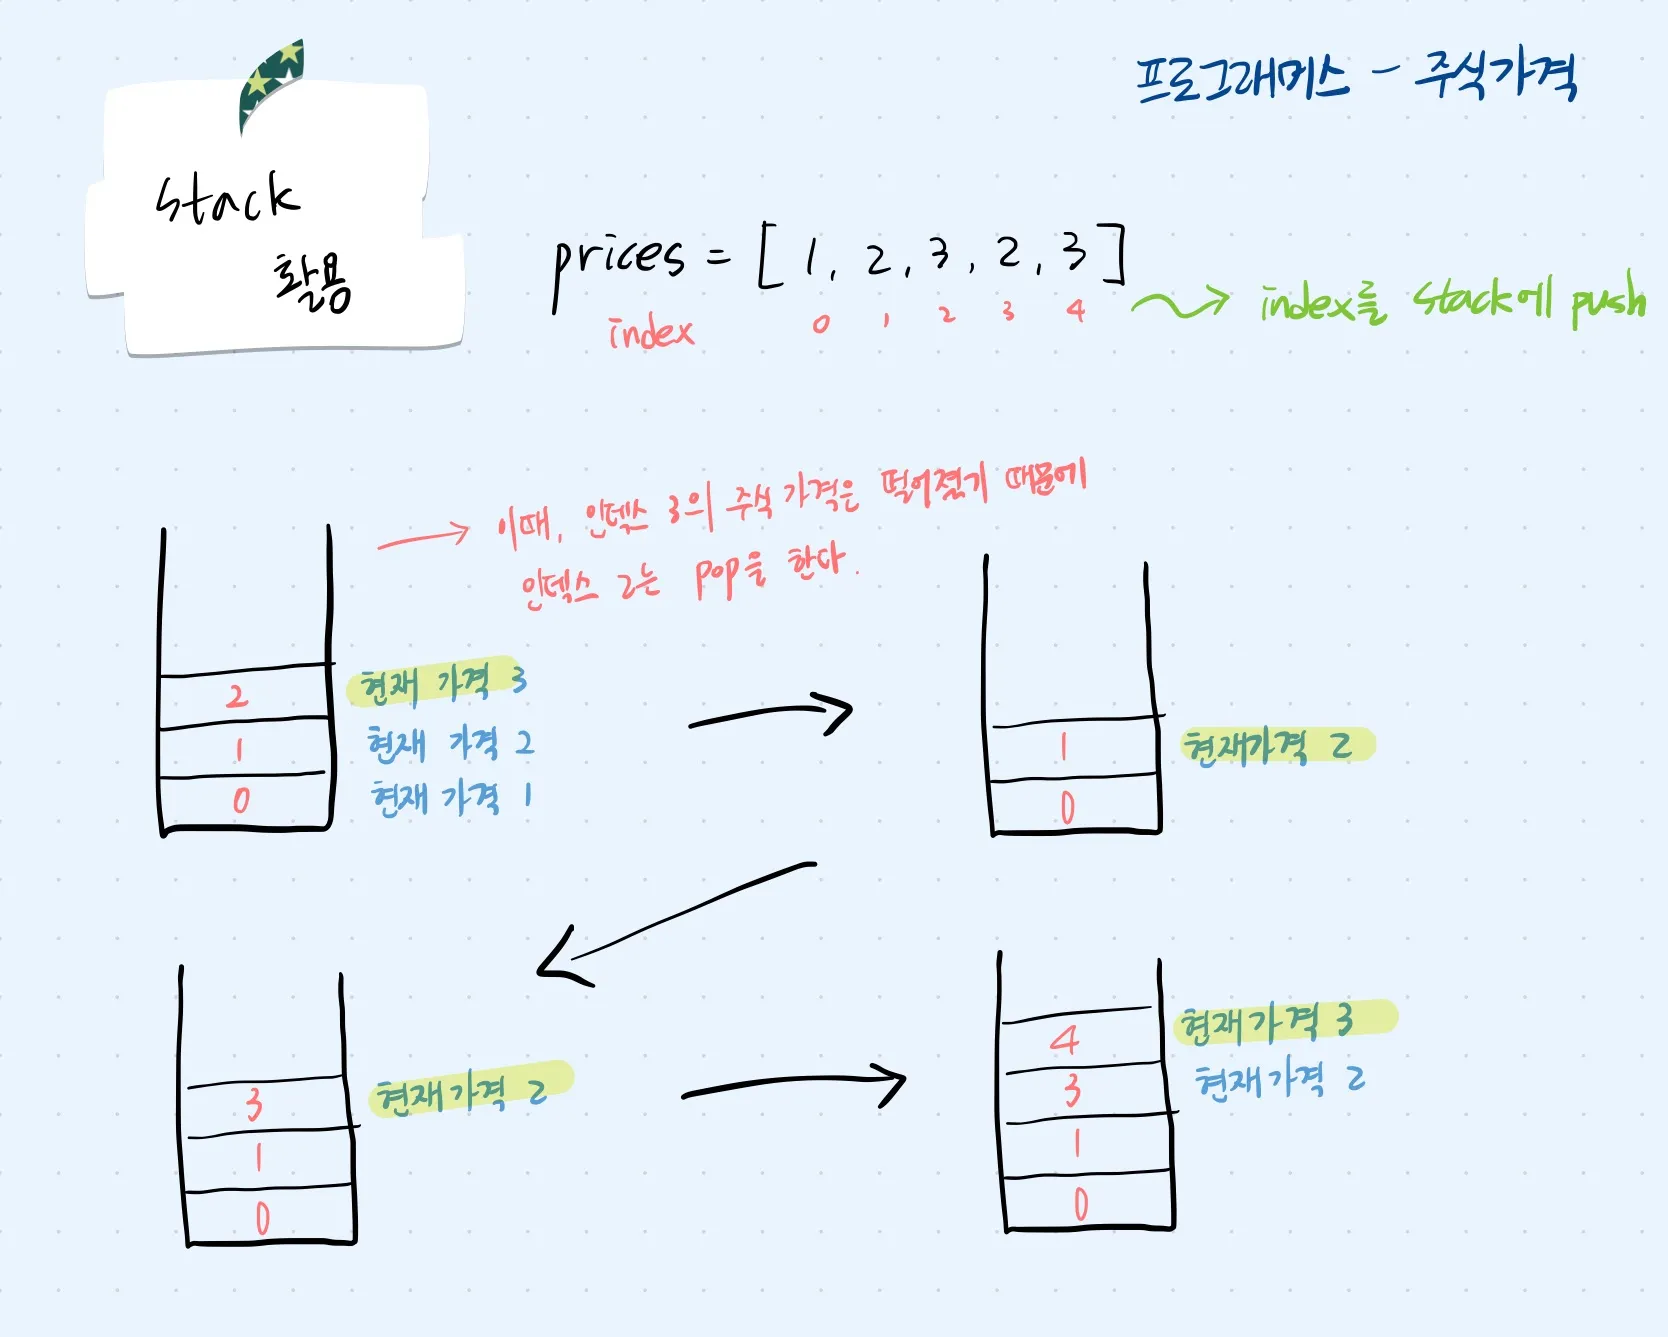 프로그래머스 - 주식가격
stack
활용
prices = [1, 2, 3, 2, 3]
index 0 1 2 3 4
index를 stack에 push
이때, 인덱스 3의 주식 가격은 떨어졌기 때문에
인덱스 2는 pop을 한다.
2 현재 가격 3
1 현재 가격 2
0 현재 가격 1
1 현재가격 2
0
3 현재가격 2
1
0
4 현재가격 3
3 현재가격 2
1
0